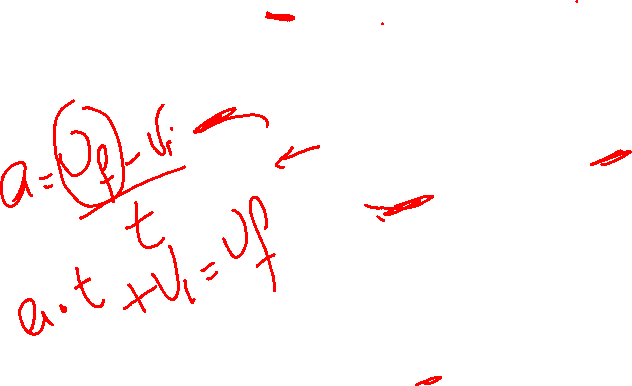 a = (vf - vi) / t
a · t + vi = vf